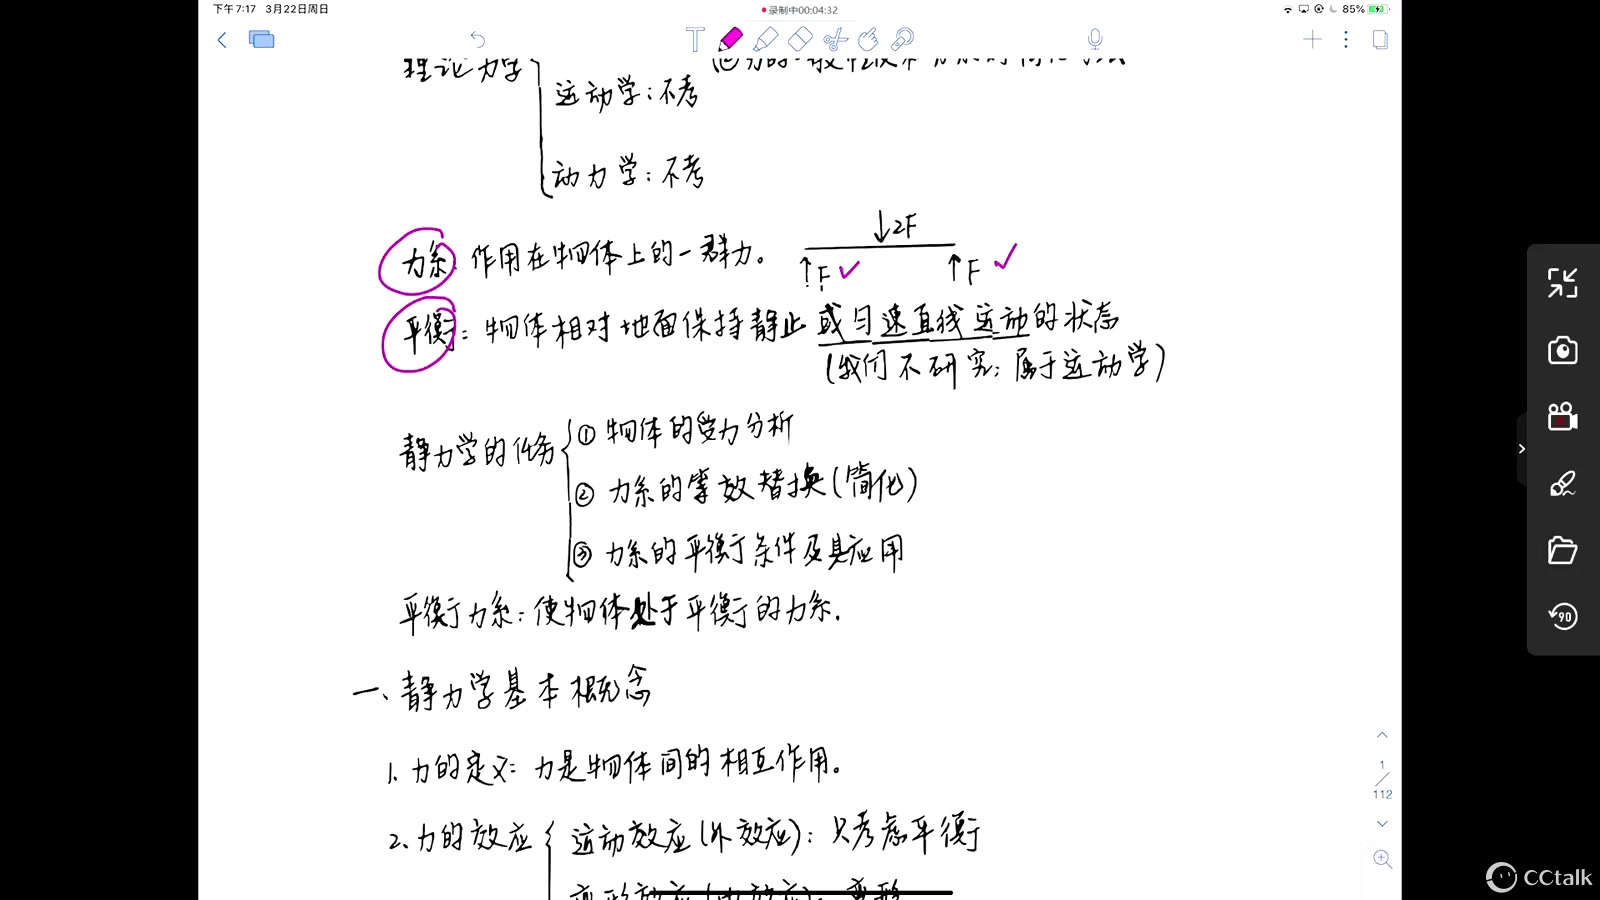 下午7:17 3月22日周日
录制中00:04:32
85%
理论力学
运动学:不考
动力学:不考
力系:作用在物体上的一群力。
2F
F
F
平衡:物体相对地面保持静止或匀速直线运动的状态
(我们不研究;属于运动学)
静力学的任务
① 物体的受力分析
② 力系的等效替换(简化)
③ 力系的平衡条件及其应用
平衡力系:使物体处于平衡的力系.
一、静力学基本概念
1. 力的定义:力是物体间的相互作用。
2. 力的效应
运动效应(外效应):只考虑平衡
1
112
90
CCtalk